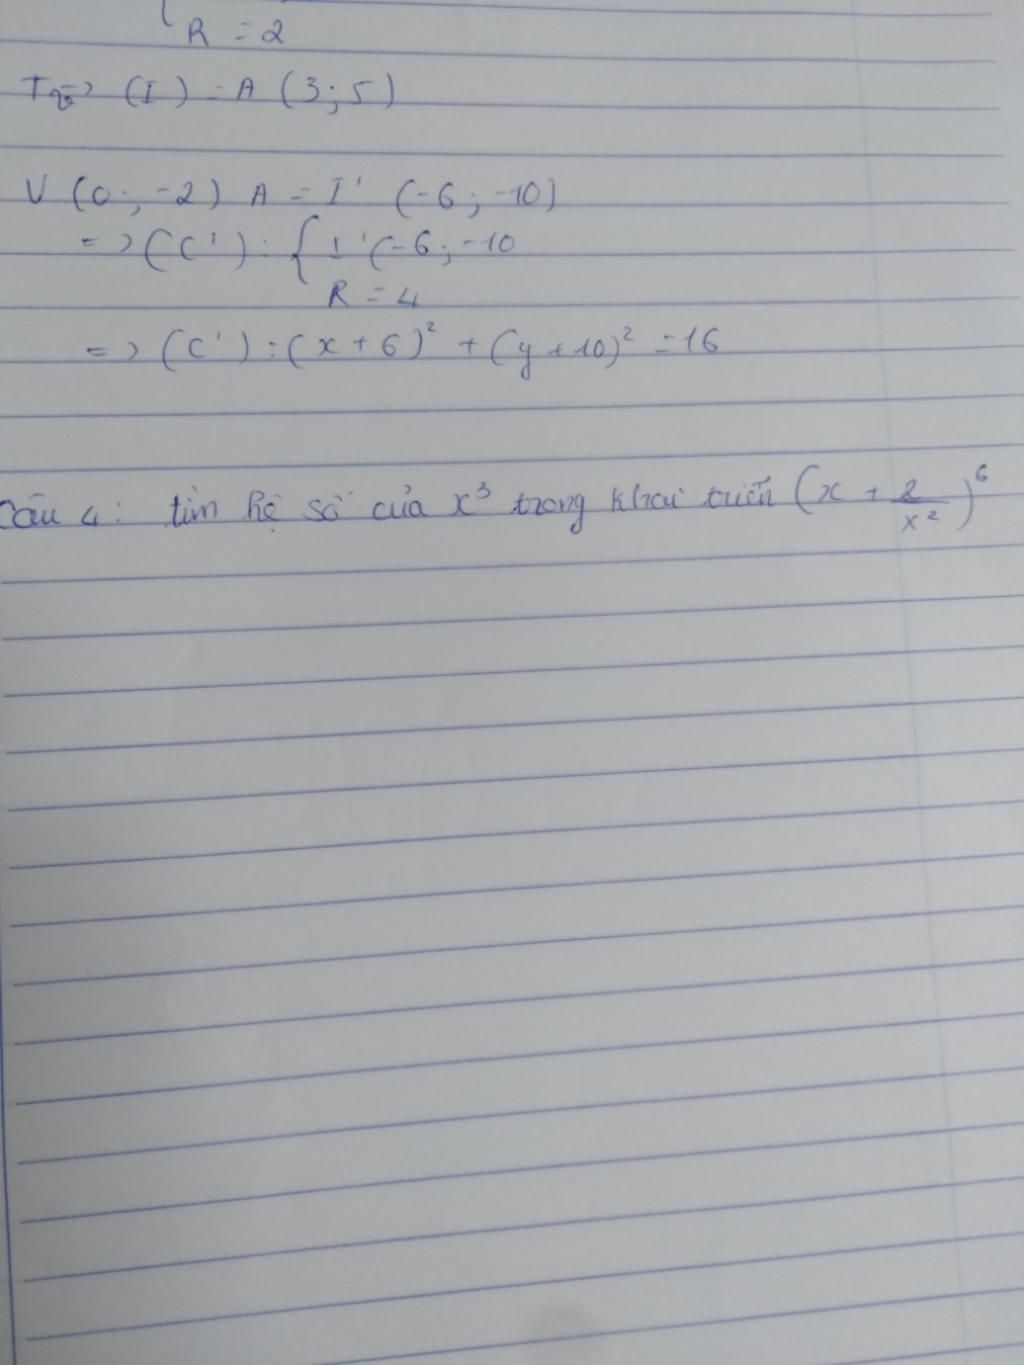 R = 2
(I) = A (3; 5)
V (0; -2) A = I' (-6; -10)
=> (C'): { I' (-6; -10
R = 4
=> (C'): (x + 6)² + (y + 10)² = 16
Câu 4: tìm hệ số của x³ trong khai triển (x + 2/x²)⁶